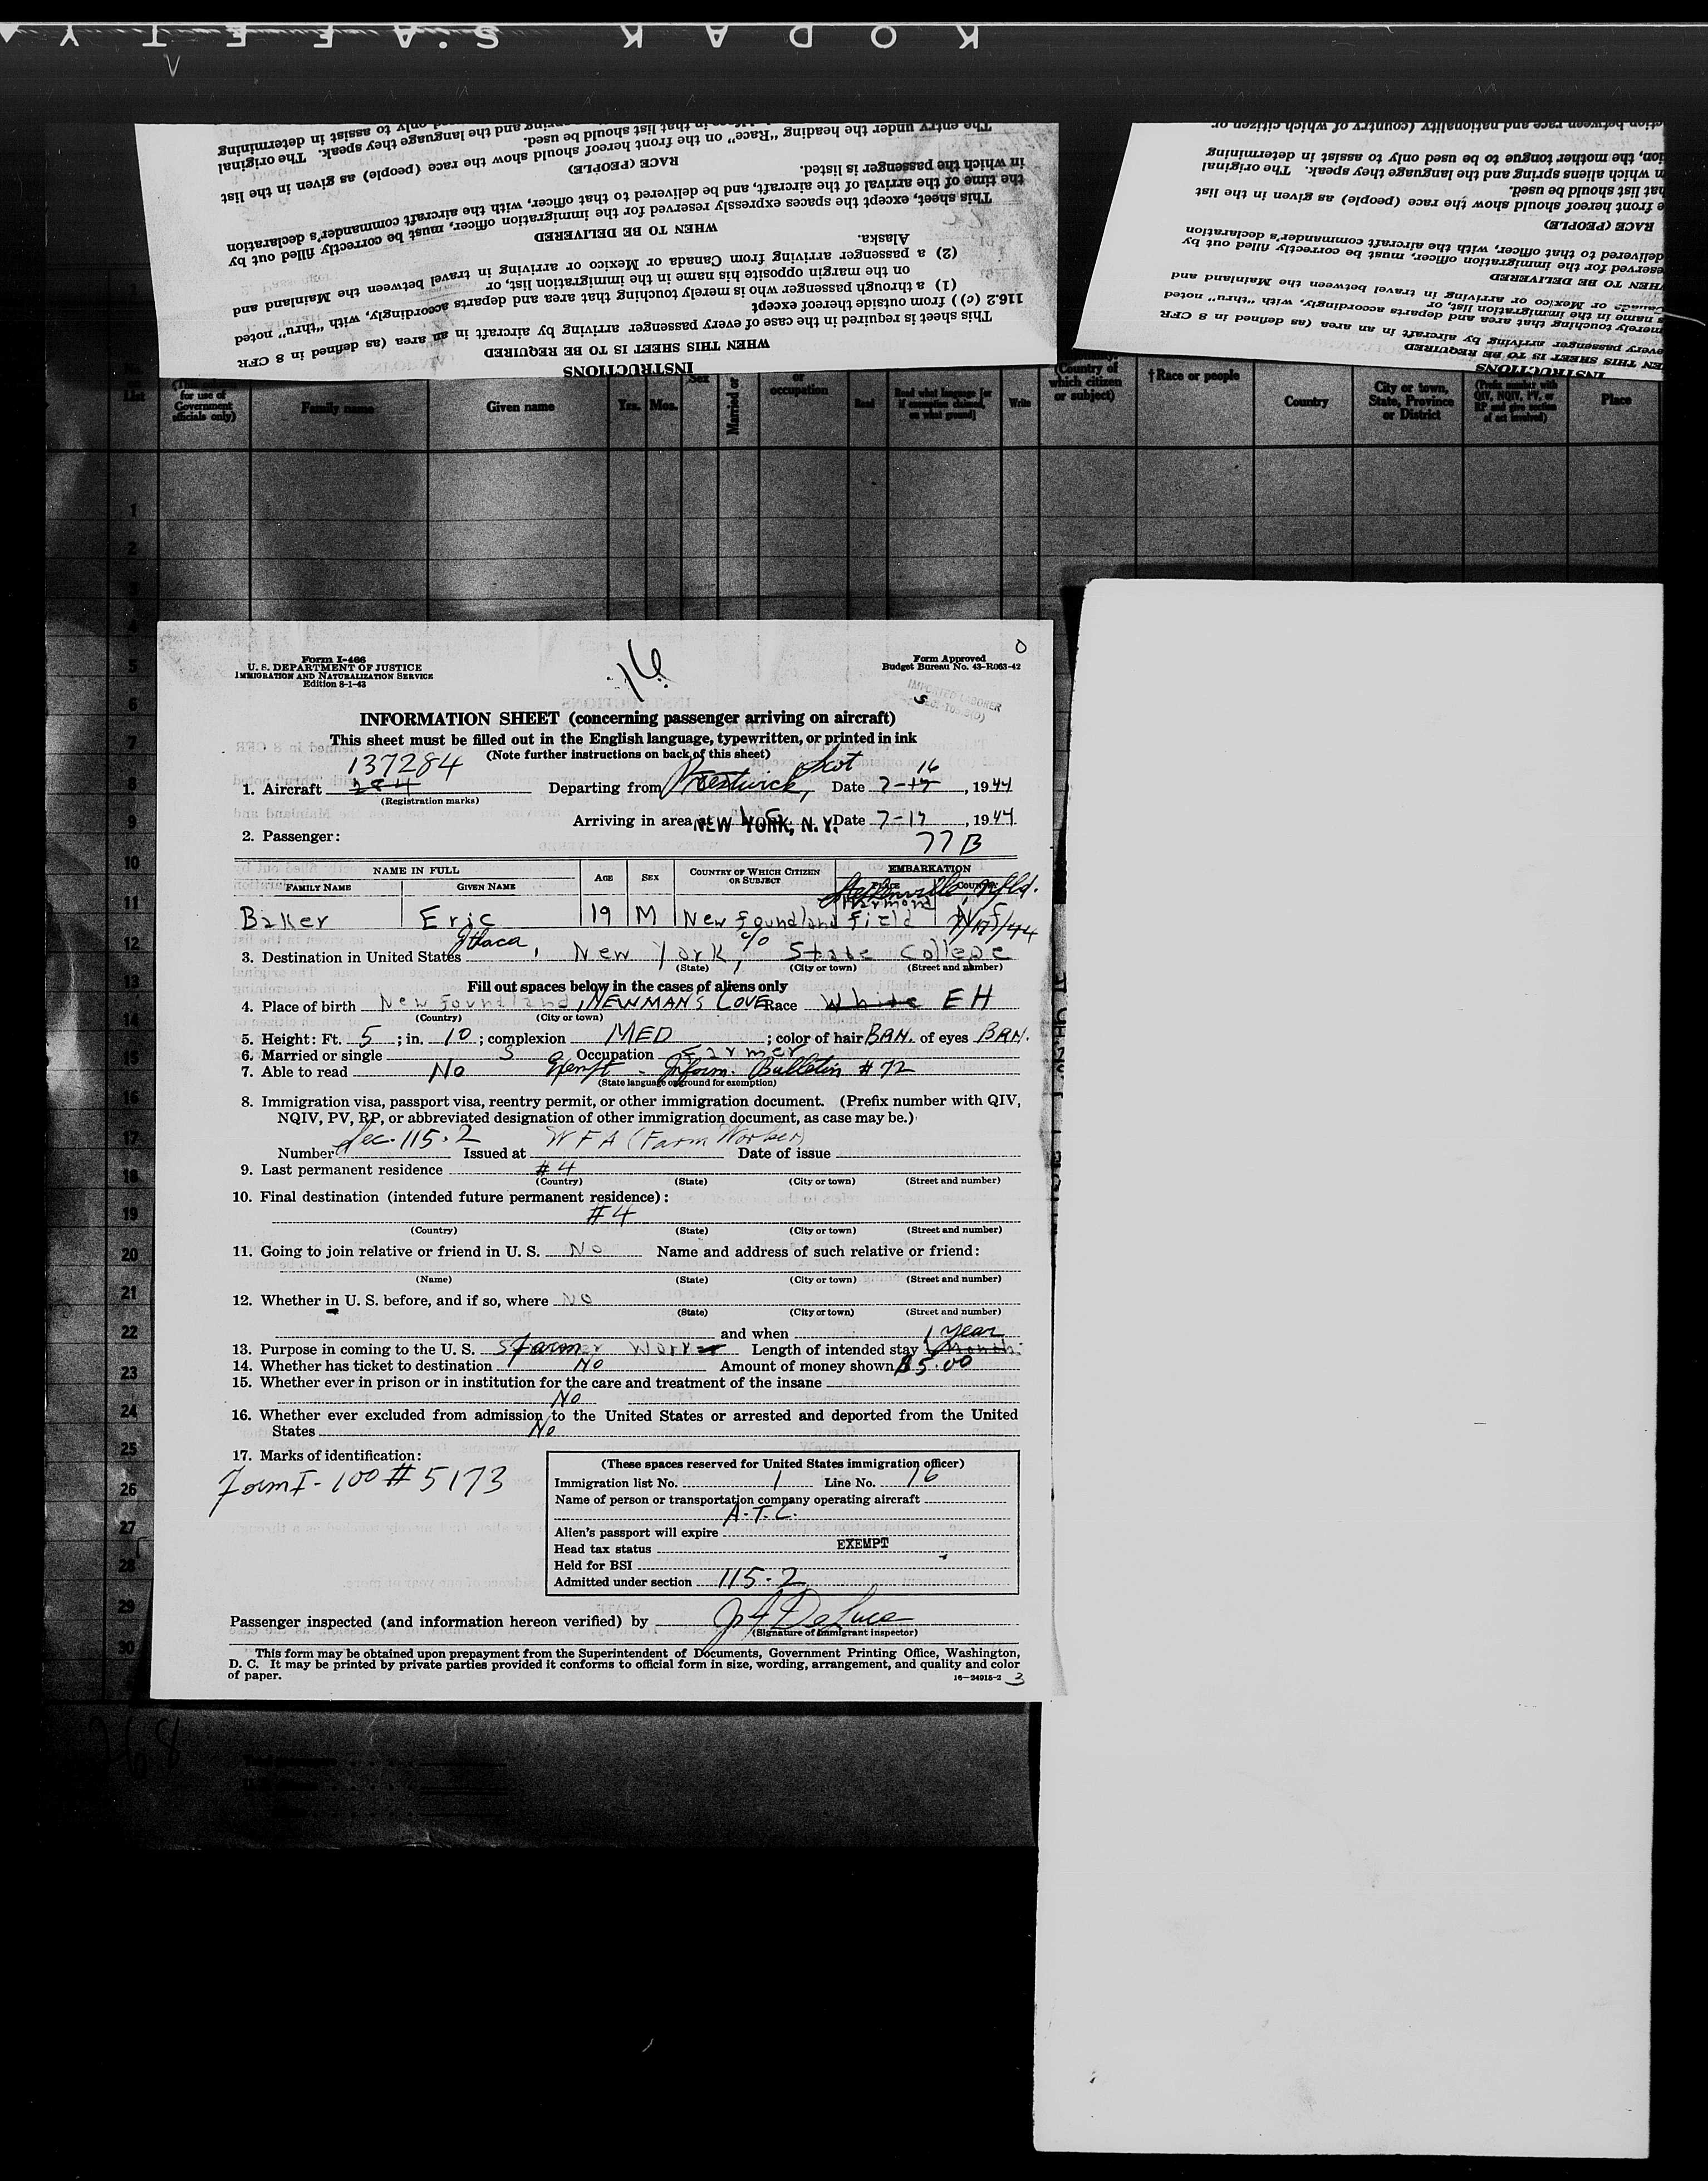 KODAK SAFETY
INSTRUCTIONS
WHEN THIS SHEET IS TO BE REQUIRED
This sheet is required in the case of every passenger arriving by aircraft in an area (as defined in 8 CFR
116.2 (c)) from outside thereof except
(1) a through passenger who is merely touching that area and departs accordingly, with "thru" noted
on the margin opposite his name in the immigration list, or
(2) a passenger arriving from Canada or Mexico or arriving in travel between the Mainland and
Alaska.
WHEN TO BE DELIVERED
This sheet, except the spaces expressly reserved for the immigration officer, must be correctly filled out by
the time of the arrival of the aircraft, and be delivered to that officer, with the aircraft commander's declaration
in which the passenger is listed.
RACE (PEOPLE)
The entry under the heading "Race" on the front hereof should show the race (people) as given in the list
in that list should be used.
spring and the language they speak. The original
only to assist in determining
INSTRUCTIONS
EN THIS SHEET IS TO BE REQUIRED
every passenger arriving by aircraft in an area (as defined in 8 CFR
merely touching that area and departs accordingly, with "thru" noted
s name in the immigration list, or
Canada or Mexico or arriving in travel between the Mainland and
HEN TO BE DELIVERED
reserved for the immigration officer, must be correctly filled out by
delivered to that officer, with the aircraft commander's declaration
RACE (PEOPLE)
e front hereof should show the race (people) as given in the list
hat list should be used.
m which aliens spring and the language they speak. The original
ion, the mother tongue to be used only to assist in determining
ction between race and nationality (country of which citizen or
No. List
(This column for use of Government officials only)
Family name
Given name
Yrs. Mos.
Sex
Married or
or occupation
Read
Read what language [or if exemption claimed, on what ground]
Write
(Country of which citizen or subject)
†Race or people
Country
City or town, State, Province or District
(Prefix number with QIV, NQIV, PV, or RP and give section of act involved)
Place
1
2
3
4
5
6
7
8
9
10
11
12
13
14
15
16
17
18
19
20
21
22
23
24
25
26
27
28
29
30
268
16
0
Form I-466
U. S. DEPARTMENT OF JUSTICE
IMMIGRATION AND NATURALIZATION SERVICE
Edition 8-1-43
Form Approved
Budget Bureau No. 43-R063-42
IMPORTED LABORER
INFORMATION SHEET (concerning passenger arriving on aircraft)
This sheet must be filled out in the English language, typewritten, or printed in ink
(Note further instructions on back of this sheet)
137284
1. Aircraft 284 Departing from Prestwick, Scot Date 7-17 16, 1944
(Registration marks)
Arriving in area at NEW YORK, N. Y. Date 7-17, 1944
2. Passenger: 77B
NAME IN FULL
FAMILY NAME GIVEN NAME
AGE SEX COUNTRY OF WHICH CITIZEN OR SUBJECT
EMBARKATION
PLACE COUNTRY
Stephenville, Nfld.
Baker Eric 19 M Newfoundland Harmond Field N.F. 7/17/44
3. Destination in United States Ithaca, New York, c/o State College
(State) (City or town) (Street and number)
Fill out spaces below in the cases of aliens only
4. Place of birth Newfoundland, NEWMAN'S COVE Race White EH
(Country) (City or town)
5. Height: Ft. 5; in. 10; complexion MED; color of hair BRN. of eyes BRN.
6. Married or single S Occupation Farmer
7. Able to read No Exempt - Inform. Bulletin #72
(State language or ground for exemption)
8. Immigration visa, passport visa, reentry permit, or other immigration document. (Prefix number with QIV,
NQIV, PV, RP, or abbreviated designation of other immigration document, as case may be.)
Number Sec. 115.2 Issued at WFA (Farm Worker) Date of issue
9. Last permanent residence #4
(Country) (State) (City or town) (Street and number)
10. Final destination (intended future permanent residence):
#4
(Country) (State) (City or town) (Street and number)
11. Going to join relative or friend in U. S. No Name and address of such relative or friend:
(Name) (State) (City or town) (Street and number)
12. Whether in U. S. before, and if so, where NO
(State) (City or town) (Street and number)
and when
13. Purpose in coming to the U. S. Farm Worker Length of intended stay 1 year
14. Whether has ticket to destination No Amount of money shown $5.00
15. Whether ever in prison or in institution for the care and treatment of the insane
No
16. Whether ever excluded from admission to the United States or arrested and deported from the United
States No
17. Marks of identification:
Form I-100 #5173
(These spaces reserved for United States immigration officer)
Immigration list No. 1 Line No. 16
Name of person or transportation company operating aircraft
A.T.C.
Alien's passport will expire
Head tax status EXEMPT
Held for BSI
Admitted under section 115.2
Passenger inspected (and information hereon verified) by DeLuca
(Signature of immigrant inspector)
This form may be obtained upon prepayment from the Superintendent of Documents, Government Printing Office, Washington,
D. C. It may be printed by private parties provided it conforms to official form in size, wording, arrangement, and quality and color
of paper.
16-24915-2 3